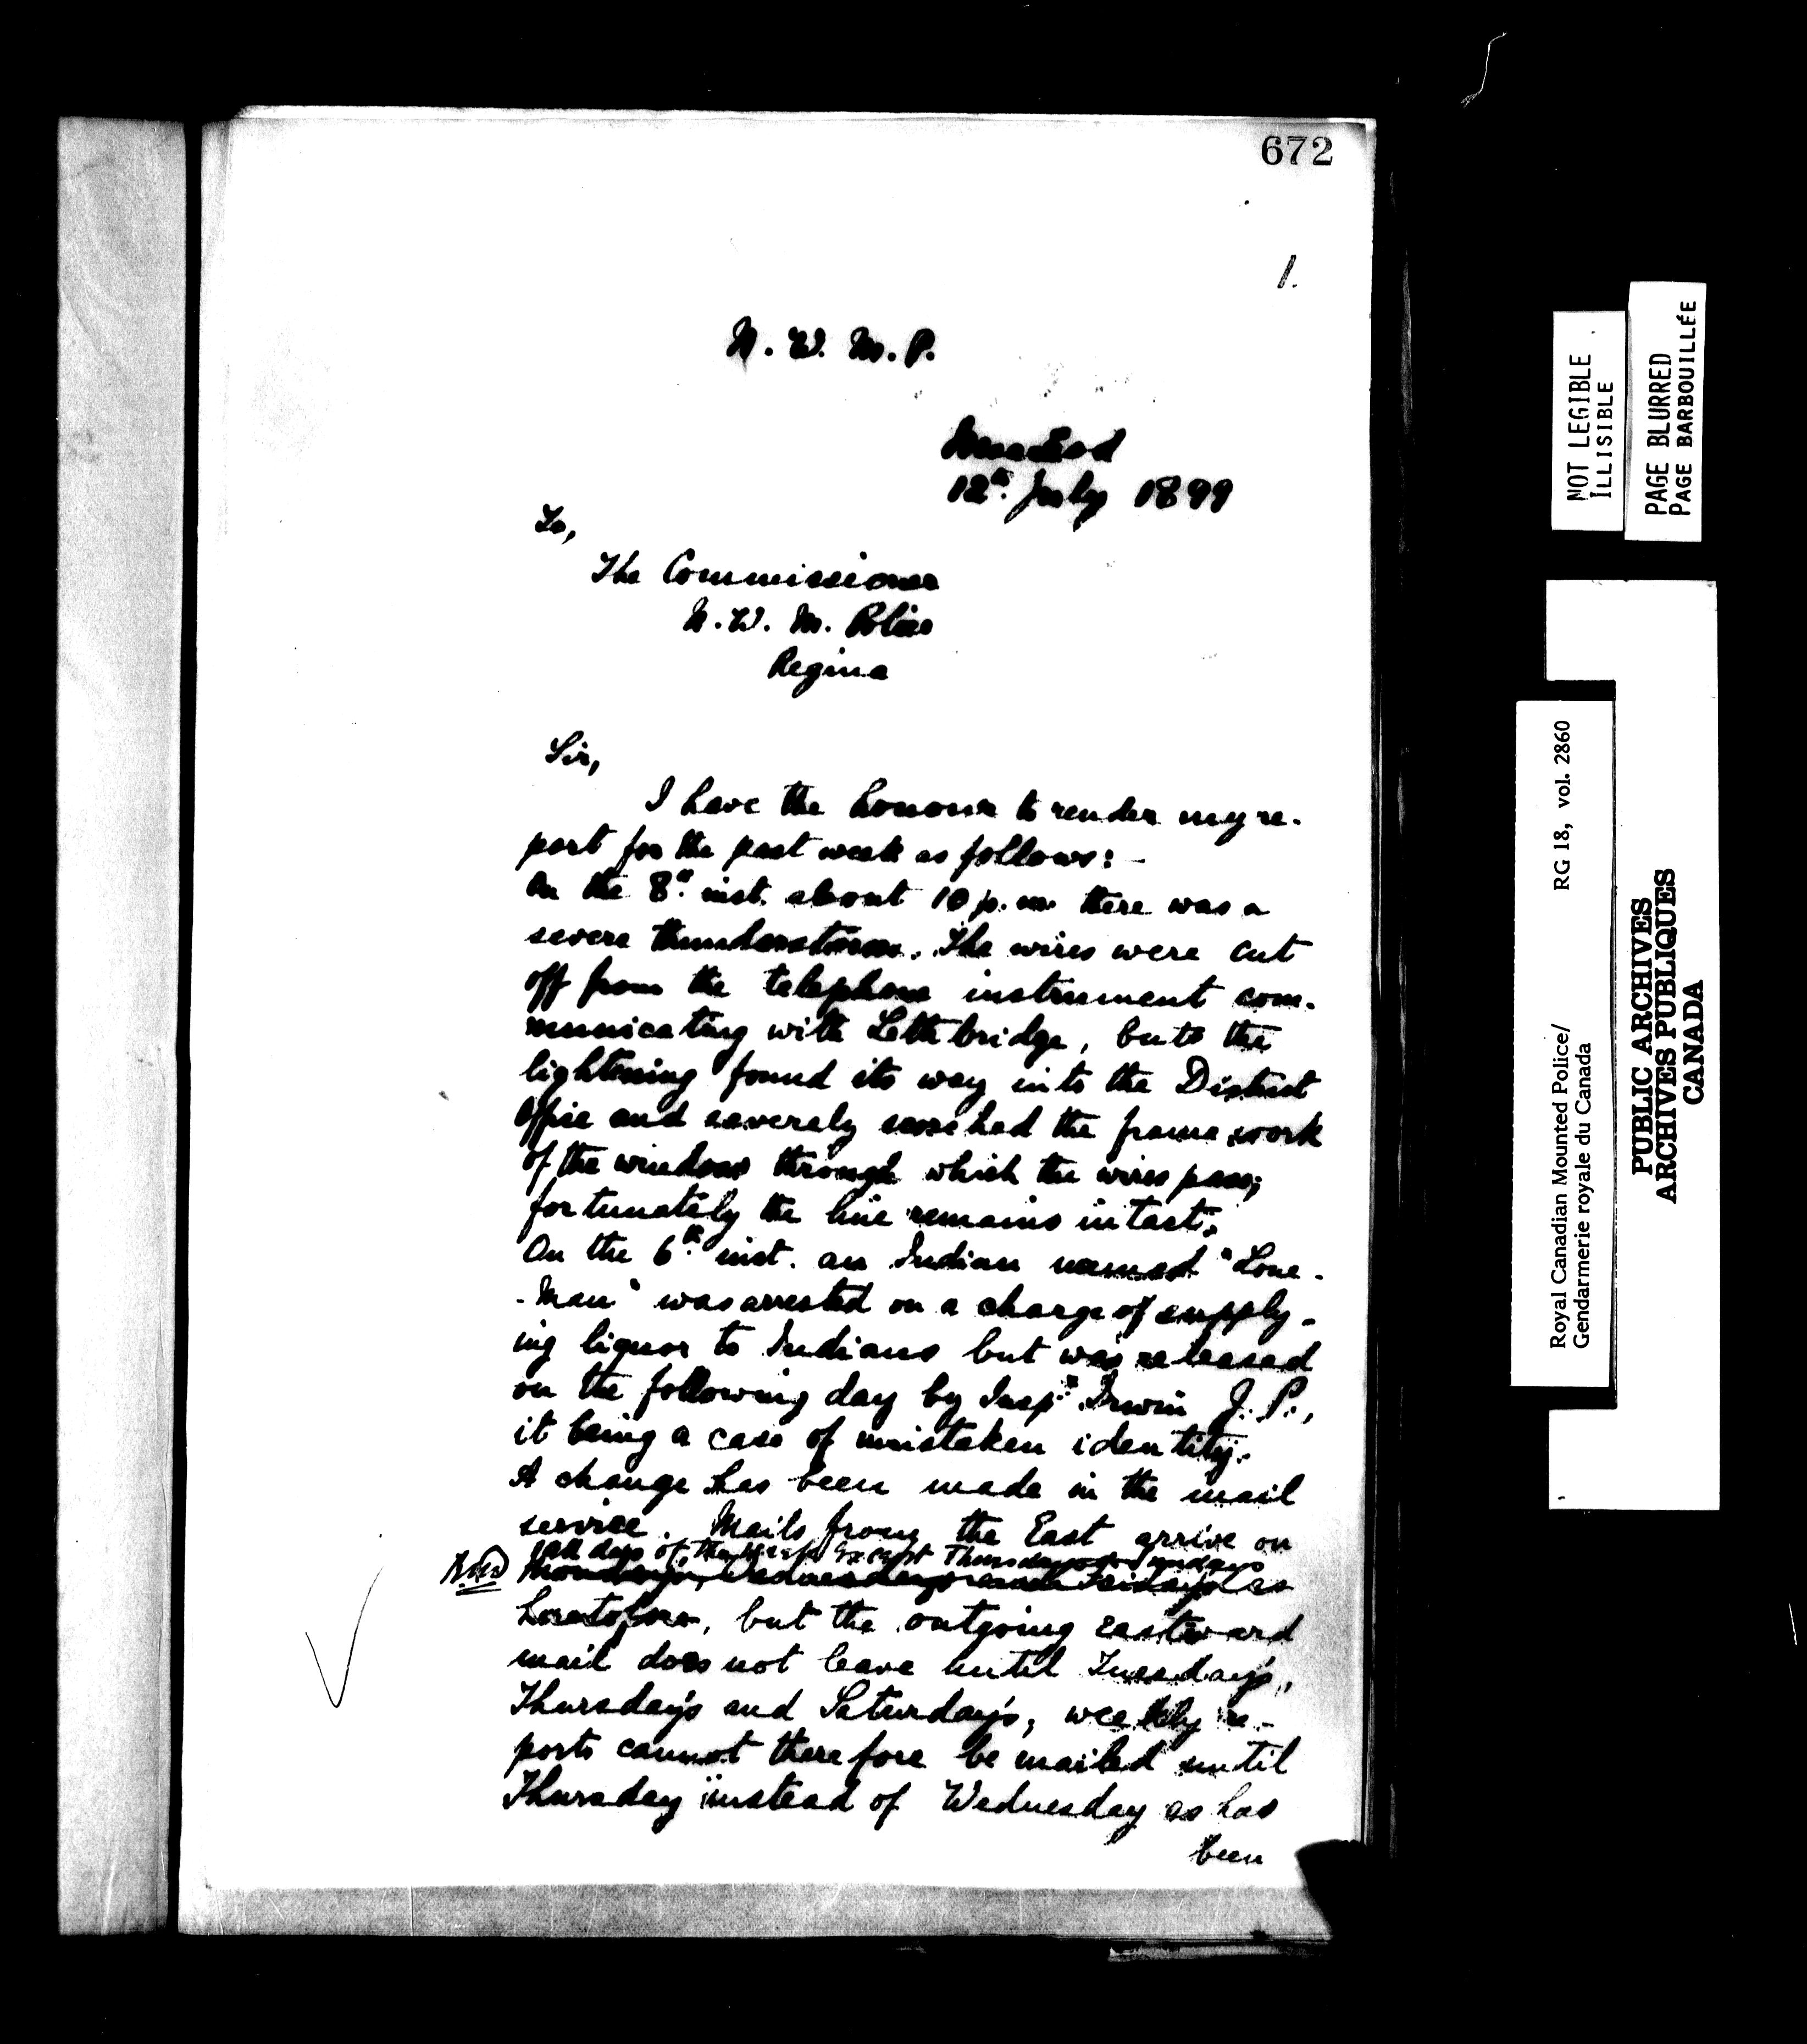 672
1.
N. W. M. P.
MacLeod
12th July 1899
To,
The Commissioner
N. W. M. Police
Regina
Sir,
I have the honour to render my re-
port for the past week as follows: -
On the 8th inst. about 10 p.m. there was a
severe thunderstorm. The wires were cut
off from the telephone instrument com-
municating with Lethbridge, but the
lightening found its way into the District
Office and severely scorched the frame work
of the window through which the wires pass;
fortunately the line remains intact.
On the 6th inst. an Indian named "Lone-
-Man" was arrested on a charge of supply-
ing liquor to Indians but was released
on the following day by Inspr Irwin J. P.,
it being a case of mistaken identity.
A change has been made in the mail
service. Mails from the East arrive on
all days of the week except Thursdays Sundays
Mondays, Wednesdays and Fridays as
heretofore, but the outgoing eastward
mail does not leave until Tuesday's,
Thursday's and Saturday's, weekly re-
ports cannot therefore be mailed until
Thursday instead of Wednesday as has
been
NOT LEGIBLE
ILLISIBLE
PAGE BLURRED
PAGE BARBOUILLÉE
Royal Canadian Mounted Police/ RG 18, vol. 2860
Gendarmerie royale du Canada
PUBLIC ARCHIVES
ARCHIVES PUBLIQUES
CANADA